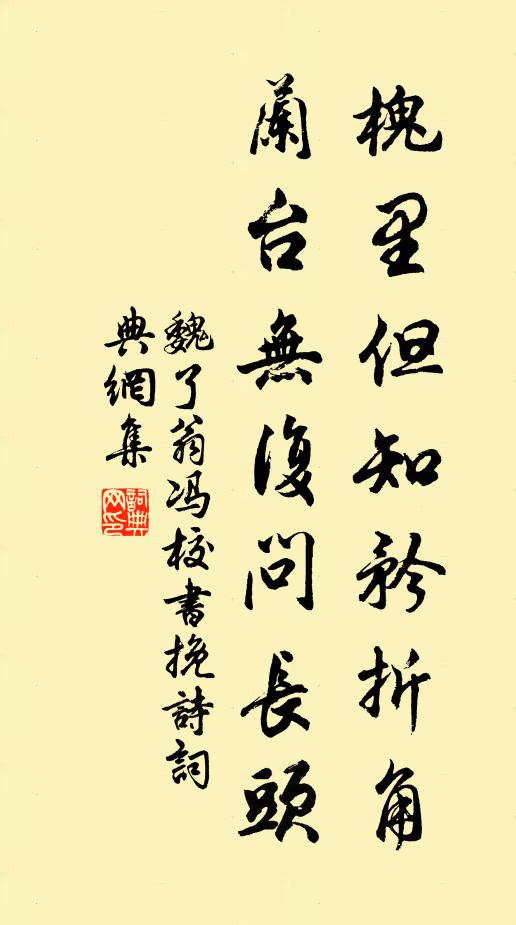 槐里但知矜折角
蘭台無復問長頭
魏了翁馮校書挽詩詞
典網集
詞典网印